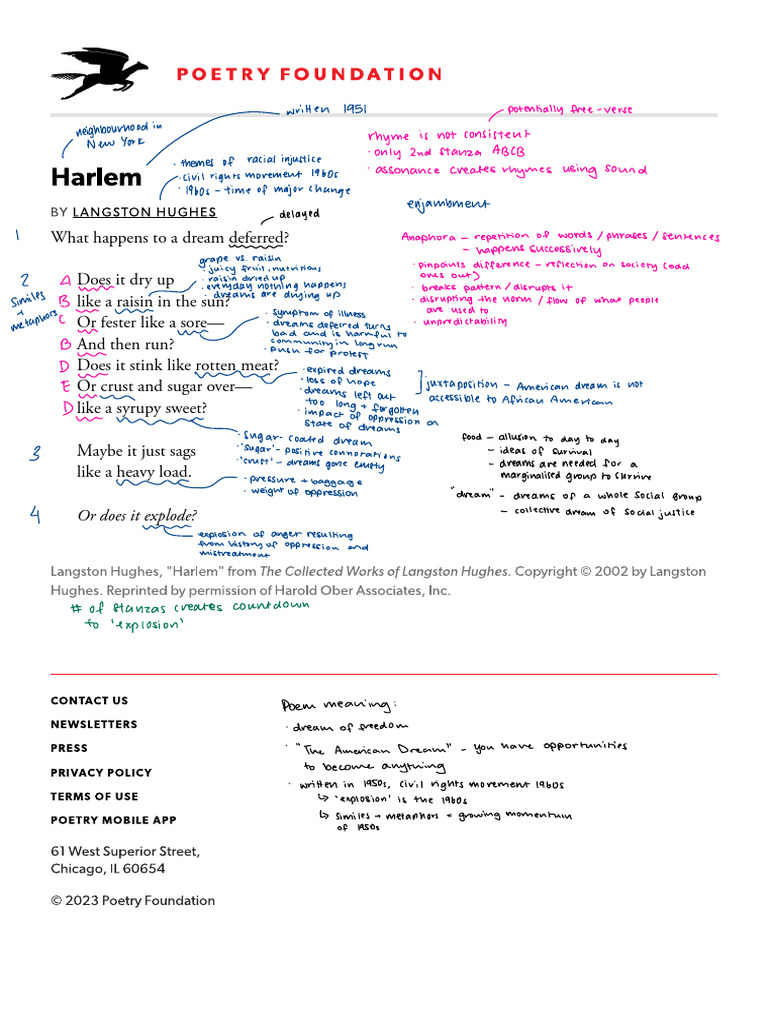 POETRY FOUNDATION
written 1951
potentially free-verse
neighbourhood in
New York
rhyme is not consistent
• only 2nd stanza ABCB
• assonance creates rhymes using sound
• themes of racial injustice
• civil rights movement 1960s
• 1960s - time of major change
Harlem
BY LANGSTON HUGHES
delayed
enjambment
1
What happens to a dream deferred?
Anaphora - repetition of words / phrases / sentences
- happens successively
• pinpoints difference - reflection on society (odd
ones out)
• breaks pattern / disrupts it
• disrupting the norm / flow of what people
are used to
• unpredictability
grape vs. raisin
• juicy fruit, nutritions
• raisin dried up
• everyday nothing happens
• dreams are drying up
2
similes
+
metaphors
A Does it dry up
B like a raisin in the sun?
C Or fester like a sore—
B And then run?
D Does it stink like rotten meat?
E Or crust and sugar over—
D like a syrupy sweet?
• symptom of illness
• dreams deferred turns
bad and is harmful to
community in long run
• push for protest
• expired dreams
• loss of hope
• dreams left out
too long + forgotten
• impact of oppression on
state of dreams
juxtaposition - American dream is not
accessible to African American
• sugar-coated dream
• 'sugar' - positive connorations
• 'crust' - dreams gone empty
food - allusion to day to day
- ideas of survival
- dreams are needed for a
marginalised group to survive
"dream" - dreams of a whole social group
- collective dream of social justice
3
Maybe it just sags
like a heavy load.
• pressure + baggage
• weight of oppression
4
Or does it explode?
explosion of anger resulting
from history of oppression and
mistreatment
Langston Hughes, "Harlem" from The Collected Works of Langston Hughes. Copyright © 2002 by Langston
Hughes. Reprinted by permission of Harold Ober Associates, Inc.
# of stanzas creates countdown
to 'explosion'
CONTACT US
NEWSLETTERS
PRESS
PRIVACY POLICY
TERMS OF USE
POETRY MOBILE APP
Poem meaning:
• dream of freedom
• "The American Dream" - you have opportunities
to become anything
• written in 1950s, civil rights movement 1960s
↳ 'explosion' is the 1960s
↳ similes + metaphors = growing momentum
of 1950s
61 West Superior Street,
Chicago, IL 60654
© 2023 Poetry Foundation